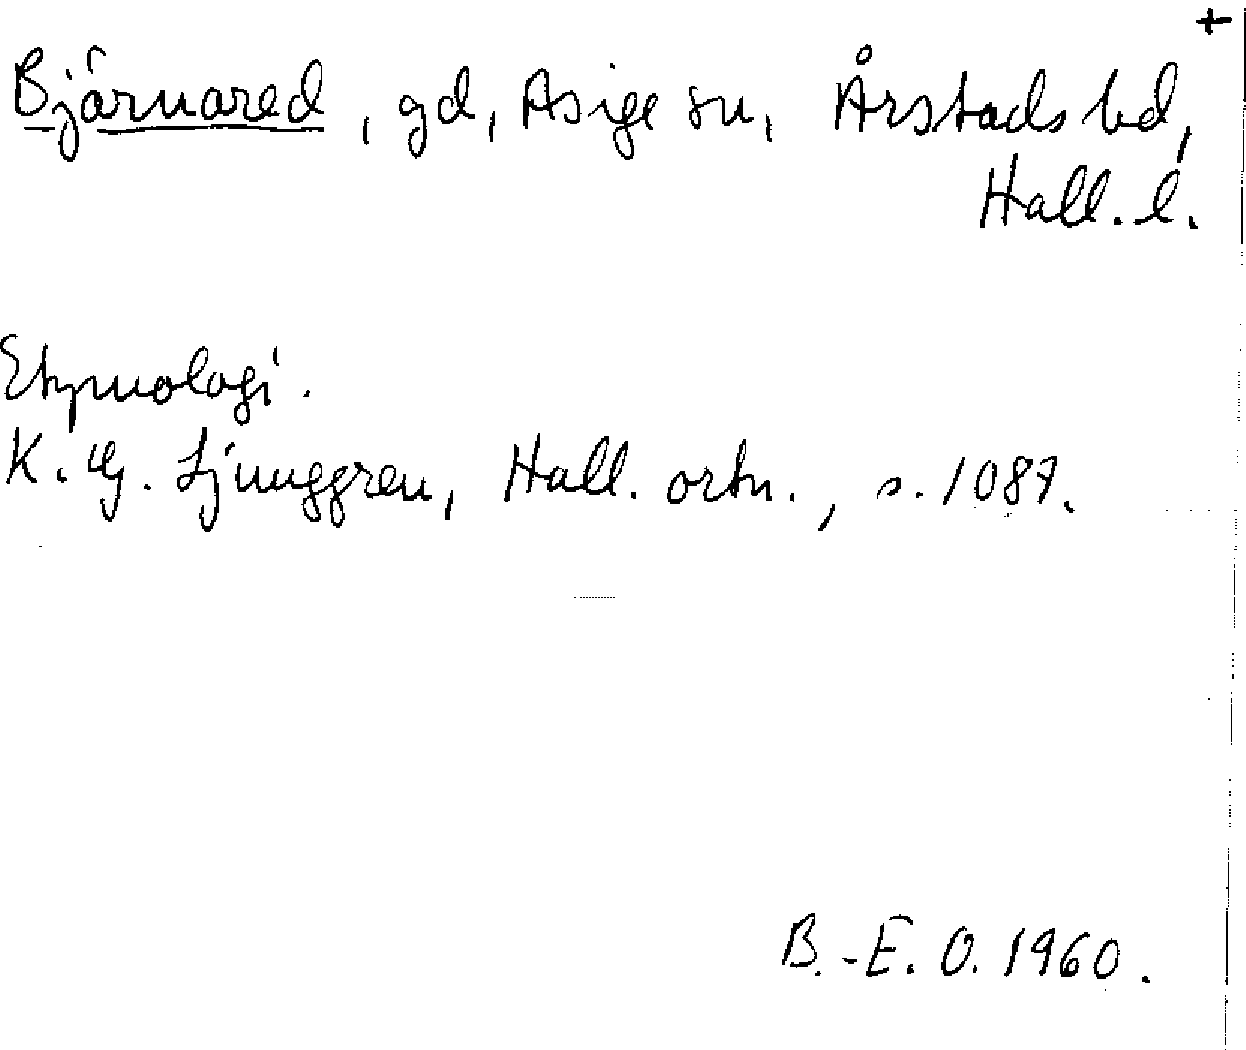 +
Bjärnared, gd, Asige sn, Årstads hd,
Hall. l.
Etymologi.
K. G. Ljunggren, Hall. ortn., s. 1087.
B.-E. O. 1960.